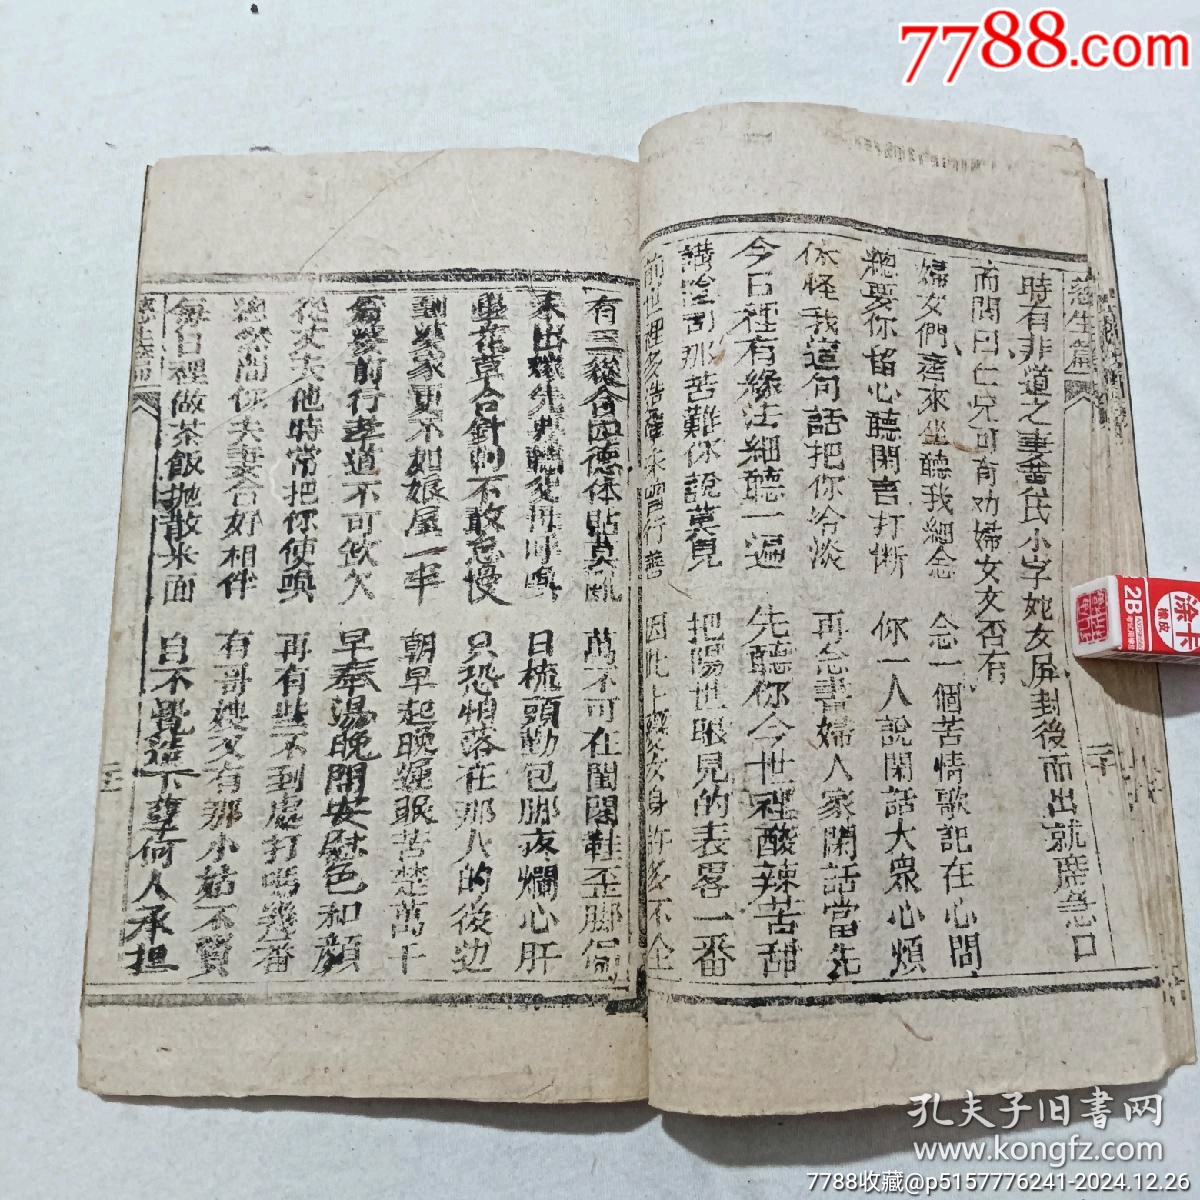 7788.com
慈生篇
二十
時有非道之妻畨氏小字她女屏封後而出就席急口
而問曰仁兄可有劝婦女文否有
婦女們齊來坐聽我細念 念一個苦情歌記在心間
總要你留心聽閑言打断 你一人說閑話大衆心煩
休怪我這句話把你冷淡 再念書婦人家閑話當先
今日裡有緣法細聽一遍 先聽你今世裡酸辣苦甜
講陰司那苦難你說莫見 把陽世眼見的表畧一番
前世裡多造罪未曾行善 因此上變女身許多不全
有三從合四德体貼莫亂 萬不可在閨閣鞋歪脚
未出嫁先 聽從 呼喚 日梳頭勤包脚疼爛心肝
花草合針 不敢怠慢 只恐怕落在那人的後边
到婆家更不如娘屋一半 朝早起晚遲眠苦楚萬千
翁婆前行孝道不可欠欠 早奉湯晚問安慰色和顏
從丈夫他時常把你使喚 再有些不到處打嗎幾番
總然間你夫妻合好相伴 有哥嫂又有那小姑不賢
每日裡做茶飯抛散米面 自不覺造下孽何人承担
2B
涂卡
橡皮
孔夫子旧書网
www.kongfz.com
7788收藏@p5157776241-2024.12.26